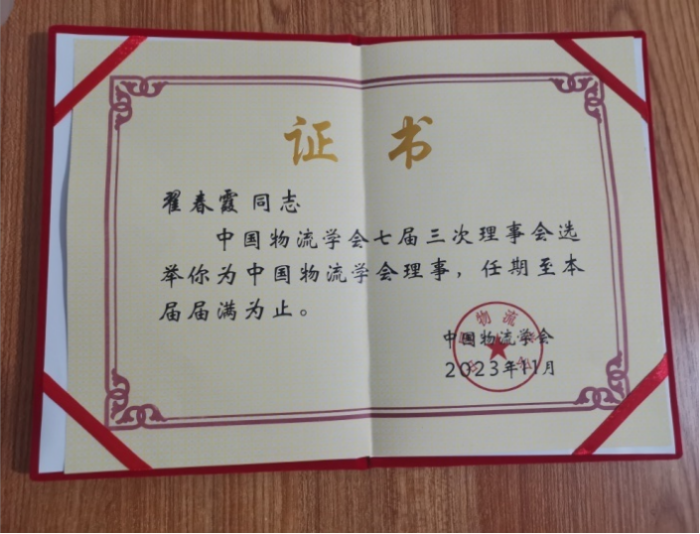 证书
翟春霞同志
中国物流学会七届三次理事会选
举你为中国物流学会理事，任期至本
届届满为止。
中国物流学会
2023年11月